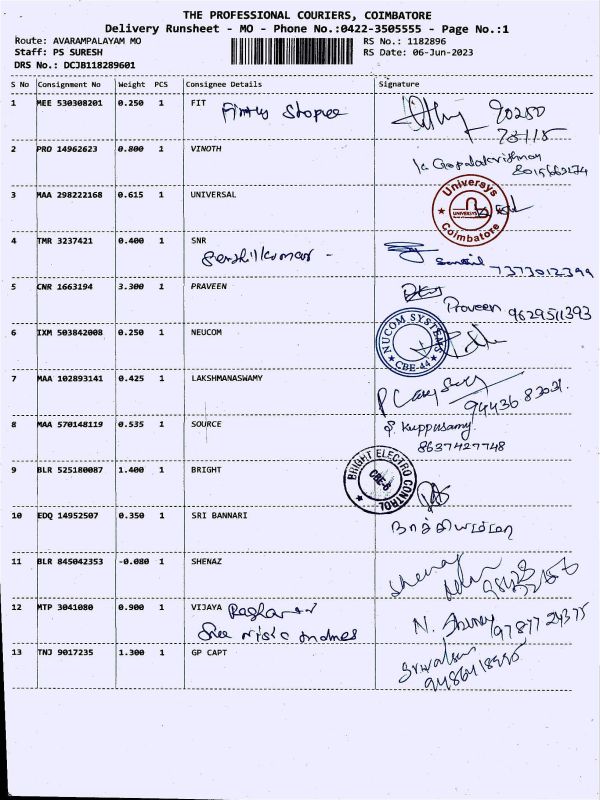 THE PROFESSIONAL COURIERS, COIMBATORE
Delivery Runsheet - MO - Phone No.:0422-3505555 - Page No.:1
Route: AVARAMPALAYAM MO RS No.: 1182896
Staff: PS SURESH RS Date: 06-Jun-2023
DRS No.: DCJB118289601
S No Consignment No Weight PCS Consignee Details Signature
1 MEE 530308201 0.250 1 FIT 90250
73118
2 PRO 14962623 0.800 1 VINOTH
k Gopalakrishnan
3 MAA 298222168 0.615 1 UNIVERSAL
Universys
UNIVERSYS
Coimbatore
4 TMR 3237421 0.400 1 SNR
Senthilkumar - Senthil
7373012399
5 CNR 1663194 3.300 1 PRAVEEN
Praveen 9629511393
6 IXM 503842008 0.250 1 NEUCOM
NUCOM SYSTEMS
CBE-44
7 MAA 102893141 0.425 1 LAKSHMANASWAMY
8 MAA 570148119 0.535 1 SOURCE
S. Kuppusamy
8637427748
9 BLR 525180087 1.400 1 BRIGHT
BRIGHT ELECTRO CONTROL
CBE-6
10 EDQ 14952507 0.350 1 SRI BANNARI
11 BLR 845042353 -0.080 1 SHENAZ
Shenaz
12 MTP 3041080 0.900 1 VIJAYA
13 TNJ 9017235 1.300 1 GP CAPT